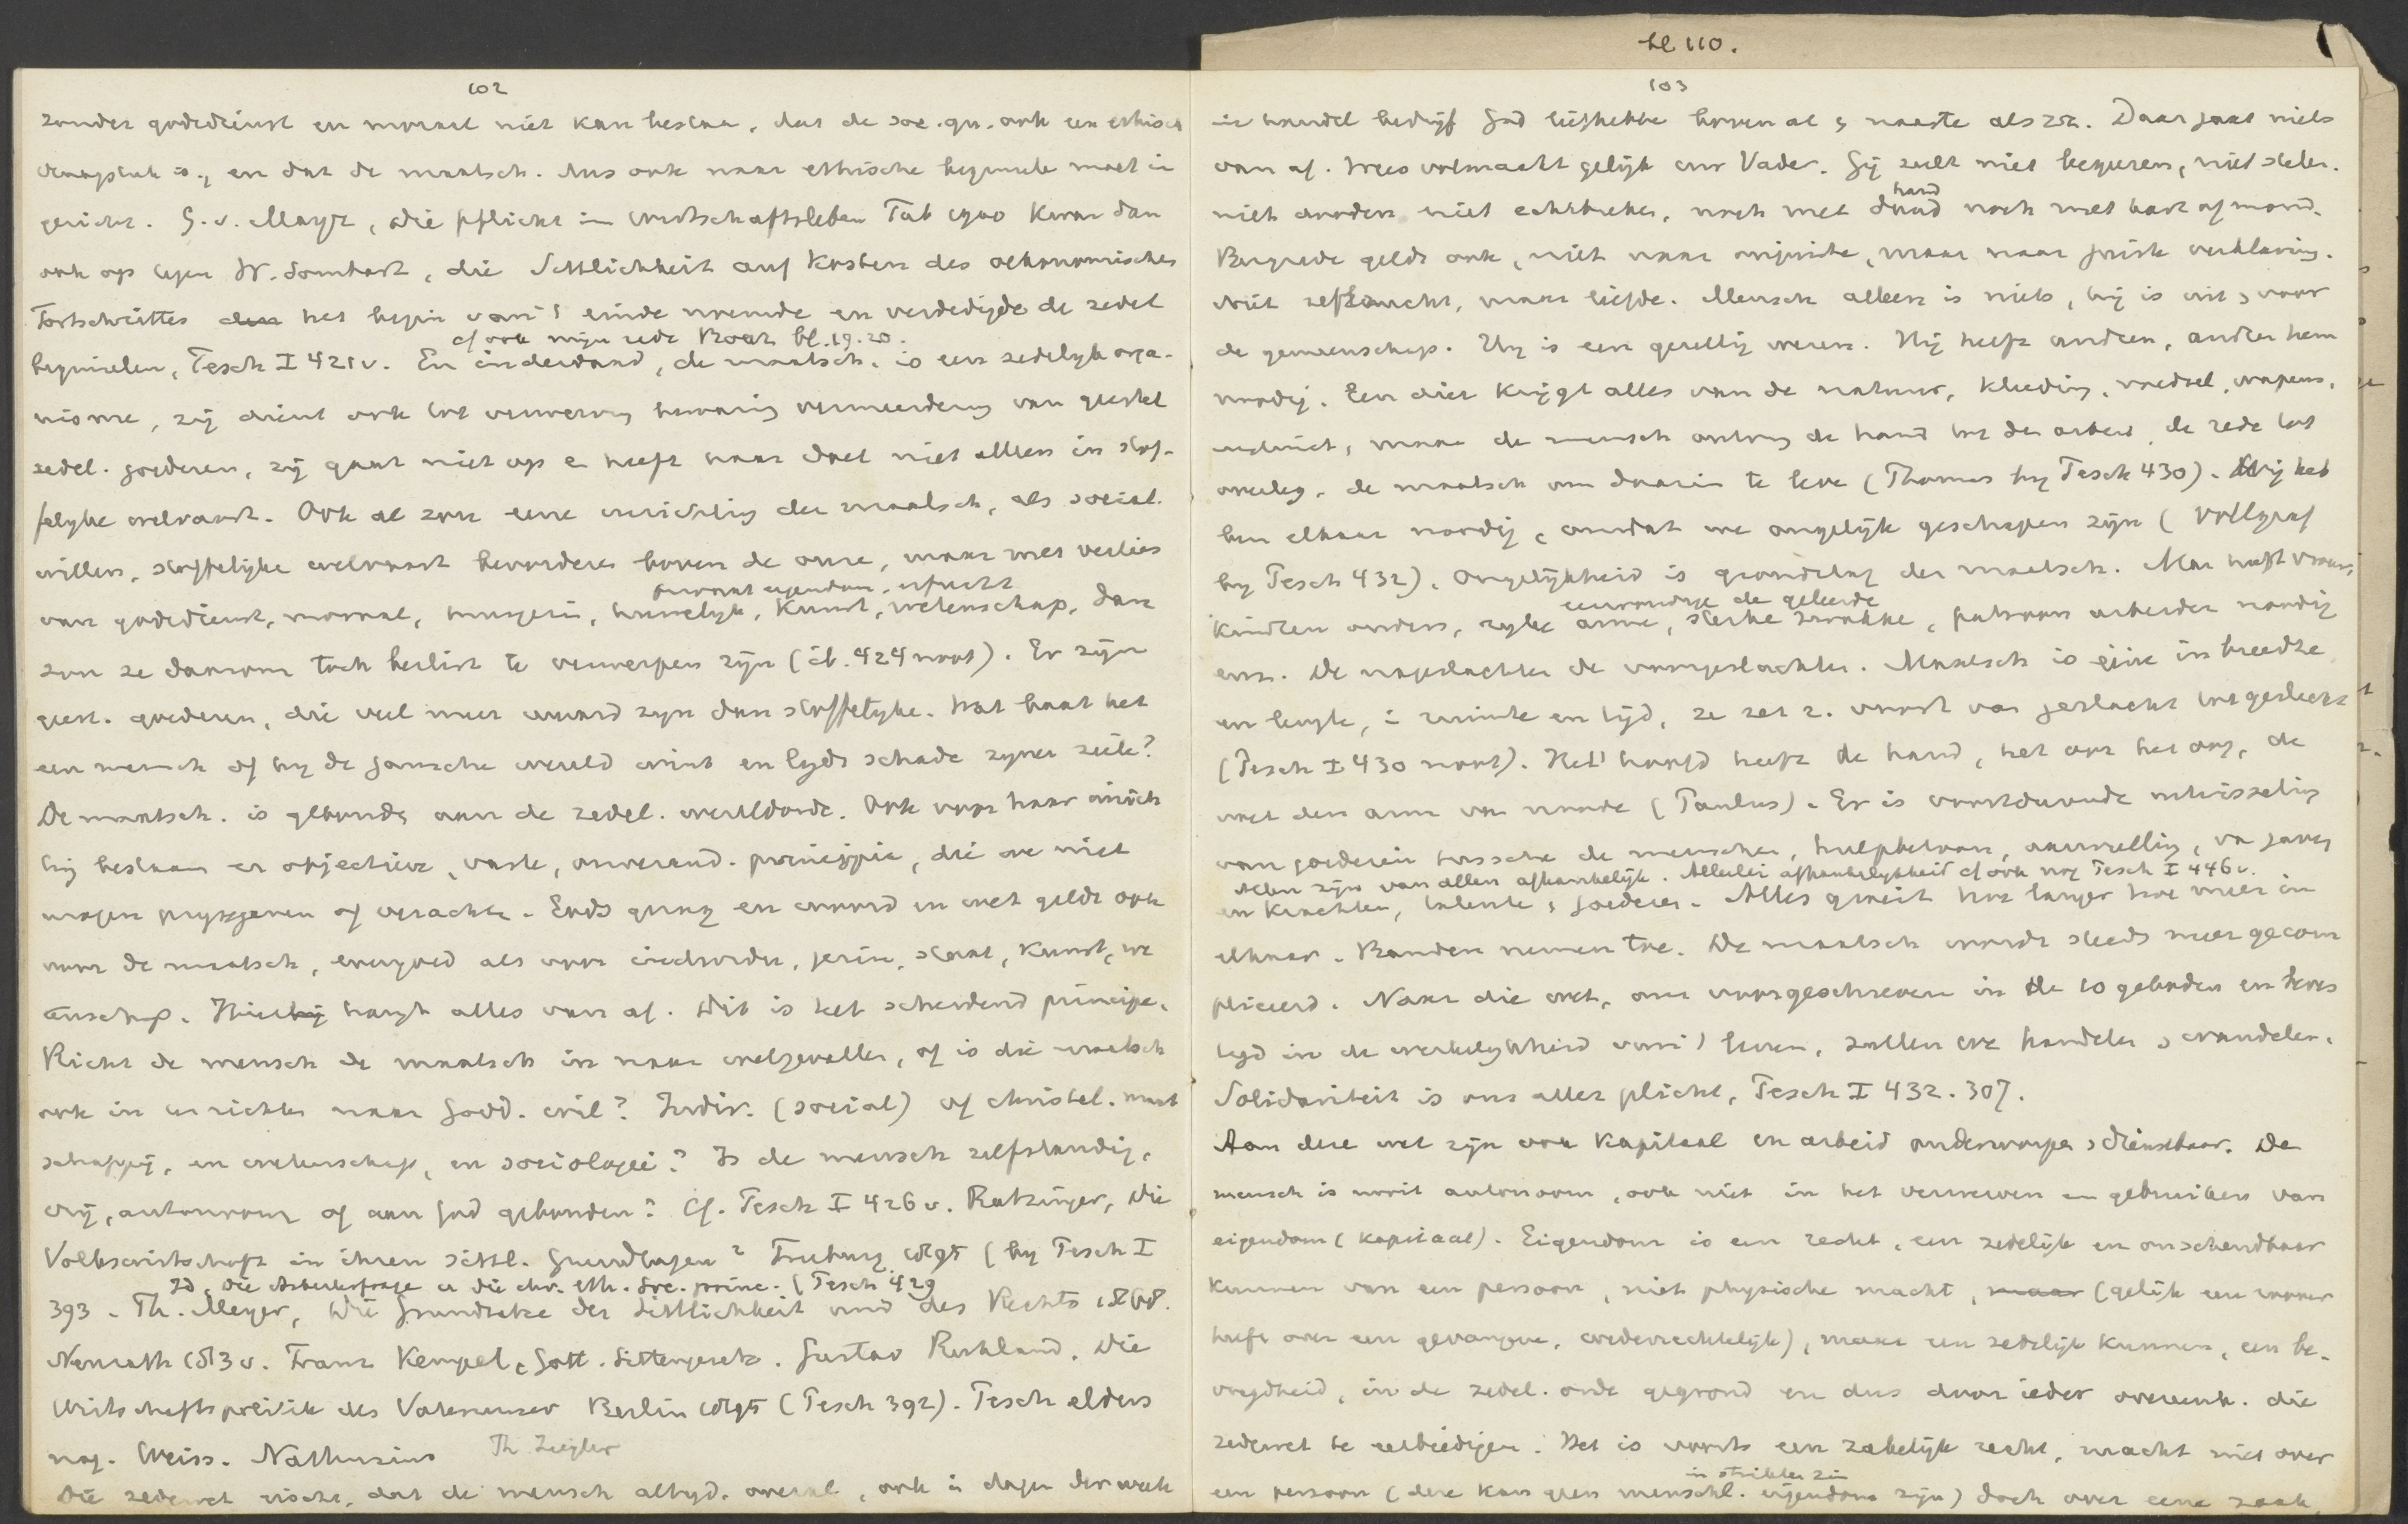 102
zonder godsdienst en moraal niet kan bestaan, dat de soc. qu. ook een ethisch
vraagstuk is, en dat de maatsch. dus ook naar ethische beginselen moet in
gericht. G. v. Mayr, die Pflicht im Wirtschaftsleben Tüb 1900 kwam dan
ook op tegen W. Sombart, die Sittlichkeit auf Kosten des oekonomischen
Fortschrittes het begin van 't einde noemde en verdedigde de zedel
cf ook mijn rede Roeach bl. 19. 20.
beginselen, Pesch I 421 v. En inderdaad, de maatsch. is een zedelijk orga-
nisme, zij dient ook tot verwerving bewaring vermeerdering van geestel
zedel. goederen, zij gaat niet op en heeft haar doel niet alleen in stof-
felyke welvaart. Ook al zou eene inrichting der maatsch, als social.
willen, stoffelijke welvaart bevorderen boven de onze, maar met verlies
privaat eigendom, erfrecht
van godsdienst, moraal, huisgezin, huwelyk, kunst, wetenschap, dan
zou ze daarom toch beslist te verwerpen zijn (ib. 424 noot). Er zijn
geest. goederen, die veel meer waard zijn dan stoffelyke. Wat baat het
een mensch of hy de gansche wereld wint en lydt schade zyner ziele?
De maatsch. is gebonden aan de zedel. wereldorde. Ook voor haar inrich
ting bestaan er objectieve, vaste, onverand. principia, die we niet
mogen prijsgeven of verachten. Gods gezag en woord en wet geldt ook
voor de maatsch, evengoed als voor individu, gezin, staat, kunst, we
tenschap. Hier hangt alles van af. Dit is het scheidend principe.
Richt de mensch de maatsch in naar welgevallen, of is die maatsch
ook in te richten naar Godd. wil? Indiv. (social) of christel. maat
schappij, en wetenschap, en sociologie? Is de mensch zelfstandig,
vrij, autonoom of aan God gebonden? Cf. Pesch I 426 v. Ratzinger, Die
Volkswirtschaft in ihren sittl. Grundlagen² Freiburg 1895 (by Pesch I
Id. Die Arbeiterfrage u die chr. eth. Soc. princ. (Pesch 429
393. Th. Meyer, Die Grundsätze der Sittlichkeit und des Rechts 1868.
Neurath 413 v. Franz Kempel, Gött. Sittengesetz. Gustav Ruhland. Die
Wirtschaftspolitik des Vaterunser Berlin 1895 (Pesch 392). Pesch elders
nog. Weiss. Nathusius Th Ziegler
Die zedewet eischt, dat de mensch altyd, overal, ook in dagen der week
bl 110.
103
in handel bedrijf God liefhebbe boven al en naaste als zich. Daar gaat niets
van af. Wees volmaakt gelijk uw Vader. Gij zult niet begeeren, niet stelen.
hand
niet dooden niet echtbreken, noch met daad noch met hart of mond.
Bergrede geldt ook, niet naar onjuiste, maar naar juiste verklaring.
Niet zelfzucht, maar liefde. Mensch alleen is niets, hij is uit en voor
de gemeenschap. Hy is een gezellig wezen. Hij heeft anderen, anderen hem
noodig. Een dier krijgt alles van de natuur, kleeding, voedsel, wapens,
instinct, maar de mensch ontving de hand tot den arbeid, de rede tot
overleg, de maatsch om daarin te leven (Thomas by Pesch 430). Wij heb
ben elkaar noodig, omdat we ongelijk geschapen zijn (Vollgraf
by Pesch 432). Ongelijkheid is grondslag der maatsch. Man heeft vrouw,
eenvoudige de geleerde
kinderen ouders, ryke arme, sterke zwakke, patroon arbeider noodig
enz. De nageslachten de voorgeslachten. Maatsch is één in breedte
en lengte, in ruimte en tijd, ze zet z. voort van geslacht tot geslacht
(Pesch I 430 noot). Het hoofd heeft de hand, het oor het oog, de
voet den arm van noode (Paulus). Er is voortdurende wisseling
van goederen tusschen de menschen, hulpbetoon, aanvulling, van gaven
Allen zijn van allen afhankelijk. Allerlei afhankelijkheid cf ook nog Pesch I 446 v.
en krachten, talenten en goederen. Alles groeit hoe langer hoe meer in
elkaar. Banden nemen toe. De maatsch wordt steeds meer gecom
pliceerd. Naar die wet, ons voorgeschreven in de 10 geboden en
in de werkelijkheid van 't leven, zullen we handelen en wandelen.
Solidariteit is ons aller plicht, Pesch I 432. 307.
Aan deze wet zijn ook kapitaal en arbeid onderworpen en dienstbaar. De
mensch is nooit autonoom, ook niet in het verwerven en gebruiken van
eigendom (kapitaal). Eigendom is een recht, een zedelijk en onschendbaar
kunnen van een persoon, niet physische macht, maar (gelijk een roover
heeft over een gevangene, wederrechtelijk), maar een zedelijk kunnen, een be-
voegdheid, in de zedel. orde gegrond en dus door ieder overeenk. die
zedewet te eerbiedigen. Het is voorts een zakelijk recht, macht niet over
in strikten zin
een persoon (deze kan geen menschl. eigendom zijn) doch over eene zaak,